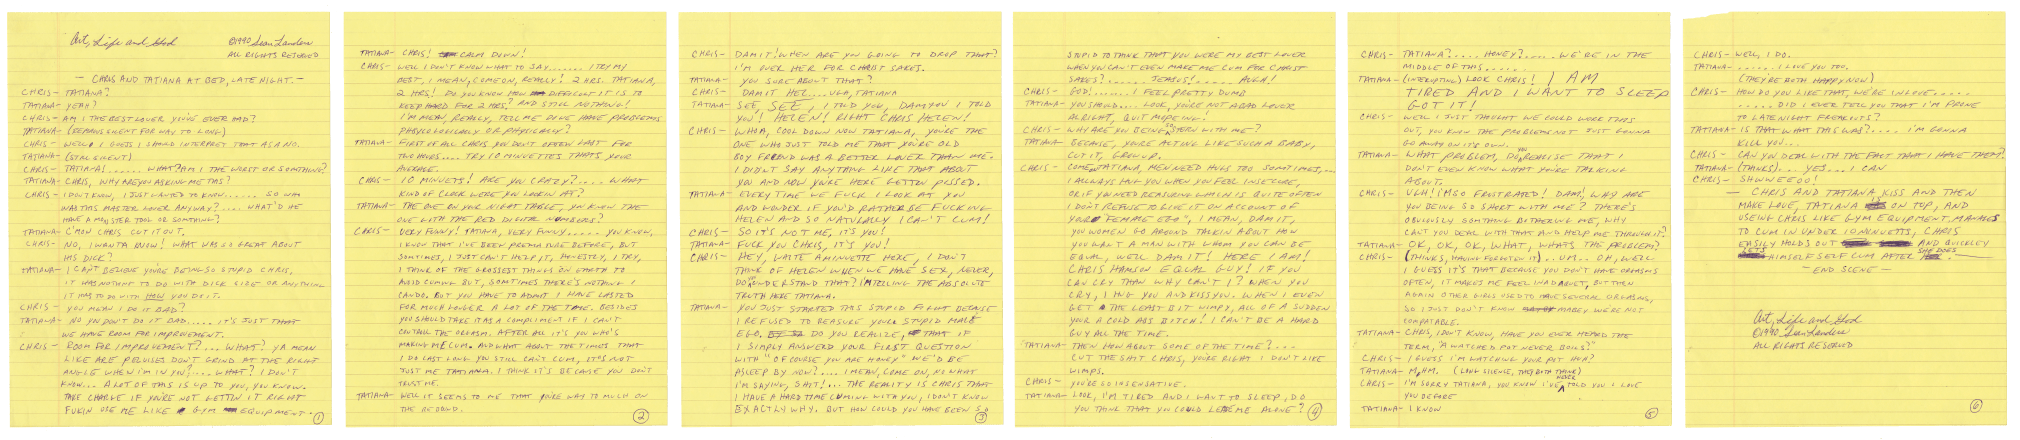 Art, Life and God
©1990 Sean Landers
ALL RIGHTS RESERVED
— CHRIS AND TATIANA AT BED, LATE NIGHT. —
CHRIS – TATIANA?
TATIANA – YEAH?
CHRIS – AM I THE BEST LOVER YOU'VE EVER HAD?
TATIANA – (REMAINS SILENT FOR WAY TO LONG)
CHRIS – WELL I GUESS I SHOULD INTERPRET THAT AS A NO.
TATIANA – (STILL SILENT)
CHRIS – TATIANA!...... WHAT? AM I THE WORST OR SOMTHING?
TATIANA – CHRIS, WHY ARE YOU ASKING ME THIS?
CHRIS – I DON'T KNOW, I JUST WANTED TO KNOW...... SO WHO
WAS THIS MASTER LOVER ANYWAY?.... WHAT'D HE
HAVE A MONSTER TOOL OR SOMTHING?
TATIANA – C'MON CHRIS CUT IT OUT.
CHRIS – NO, I WANTA KNOW! WHAT WAS SO GREAT ABOUT
HIS DICK?
TATIANA – I CAN'T BELIEVE YOU'RE BEING SO STUPID CHRIS,
IT WAS NOT TO DO WITH DICK SIZE OR ANYTHING
IT HAS TO DO WITH HOW YOU DO IT.
CHRIS – YOU MEAN I DO IT BAD?
TATIANA – NO YOU DON'T DO IT BAD..... IT'S JUST THAT
WE HAVE ROOM FOR IMPROVEMENT.
CHRIS – ROOM FOR IMPROVEMENT?... WHAT? YA MEAN
LIKE ARE PELVISES DON'T GRIND AT THE RIGHT
ANGLE WHEN I'M IN YOU?.... WHAT? I DON'T
KNOW... A LOT OF THIS IS UP TO YOU, YOU KNOW.
TAKE CHARGE IF YOU'RE NOT GETTIN IT RIGHT
FUKIN USE ME LIKE GYM EQUIPMENT.
1
TATIANA – CHRIS! CALM DOWN!
CHRIS – WELL I DON'T KNOW WHAT TO SAY....... I TRY MY
BEST, I MEAN, COME ON, REALLY! 2 HRS. TATIANA,
2 HRS! DO YOU KNOW HOW DIFFICULT IT IS TO
KEEP HARD FOR 2 HRS? AND STILL NOTHING!
I'M MEAN, REALLY, TELL ME DO WE HAVE PROBLEMS
PHYCOLOGICALLY OR PHYSICALLY?
TATIANA – FIRST OF ALL CHRIS YOU DON'T OFTEN LAST FOR
TWO HOURS.... TRY 10 MINUETTES THAT'S YOUR
AVERAGE.
CHRIS – 10 MINUETS! ARE YOU CRAZY?.... WHAT
KIND OF CLOCK WERE YOU LOOKIN AT?
TATIANA – THE ONE ON YOUR NIGHT TABLE, YOU KNOW THE
ONE WITH THE RED DIGITAL NUMBERS?
CHRIS – VERY FUNNY! TATIANA, VERY FUNNY..... YOU KNOW,
I KNOW THAT I'VE BEEN PREMATURE BEFORE, BUT
SOMTIMES, I JUST CAN'T HELP IT, HONESTLY, I TRY,
I THINK OF THE GROSSEST THINGS ON EARTH TO
AVOID CUMING BUT, SOMTIMES THERE'S NOTHING I
CAN DO. BUT YOU HAVE TO ADMIT I HAVE LASTED
FOR MUCH LONGER A LOT OF THE TIME. BESIDES
YOU SHOULD TAKE IT AS A COMPLIMENT IF I CAN'T
CONTROLL THE ORGASM. AFTER ALL IT'S YOU WHO'S
MAKING ME CUM. AND WHAT ABOUT THE TIMES THAT
I DO LAST LONG YOU STILL CAN'T CUM, IT'S NOT
JUST ME TATIANA. I THINK IT'S BECAUSE YOU DON'T
TRUST ME.
TATIANA – WELL IT SEEMS TO ME THAT YOU'RE WAY TO MUCH ON
THE REBOUND.
2
CHRIS – DAMIT! WHEN ARE YOU GOING TO DROP THAT?
I'M OVER HER FOR CHRIST SAKES.
TATIANA – YOU SURE ABOUT THAT?
CHRIS – DAMIT HEL... UGH, TATIANA
TATIANA – SEE, SEE, I TOLD YOU, DAM YOU I TOLD
YOU! HELEN! RIGHT CHRIS HELEN!
CHRIS – WHOA, COOL DOWN NOW TATIANA, YOU'RE THE
ONE WHO JUST TOLD ME THAT YOU'RE OLD
BOY FRIEND WAS A BETTER LOVER THAN ME.
I DIDN'T SAY ANYTHING LIKE THAT ABOUT
YOU AND NOW YOU'RE HERE GETTIN PISSED.
TATIANA – EVERY TIME WE FUCK I LOOK AT YOU
AND WONDER IF YOU'D RATHER BE FUCKING
HELEN AND SO NATURALLY I CAN'T CUM!
CHRIS – SO IT'S NOT ME, IT'S YOU!
TATIANA – FUCK YOU CHRIS, IT'S YOU!
CHRIS – HEY, WAITE A MINUETTE HERE, I DON'T
THINK OF HELEN WHEN WE HAVE SEX, NEVER,
DO YOU UNDERSTAND THAT? I'M TELLING THE ABSOLUTE
TRUTH HERE TATIANA.
TATIANA – YOU JUST STARTED THIS STUPID FIGHT BECAUSE
I REFUSED TO REASURE YOUR STUPID MALE
EGO. DO YOU REALIZE, THAT IF
I SIMPLY ANSWERD YOUR FIRST QUESTION
WITH "OF COURSE YOU ARE HONEY" WE'D BE
ASLEEP BY NOW?.... I MEAN, COME ON, NO WHAT
I'M SAYING, SHIT!... THE REALITY IS CHRIS THAT
I HAVE A HARD TIME CUMING WITH YOU, I DON'T KNOW
EXACTLY WHY. BUT HOW COULD YOU HAVE BEEN SO
3
STUPID TO THINK THAT YOU WERE MY BEST LOVER
WHEN YOU CAN'T EVEN MAKE ME CUM FOR CHRIST
SAKES?...... JEASUS!..... AUGH!
CHRIS – GOD!....... I FEEL PRETTY DUMB
TATIANA – YOU SHOULD.... LOOK, YOU'RE NOT A BAD LOVER
ALRIGHT, QUIT MOPEING!
CHRIS – WHY ARE YOU BEING SO STERN WITH ME?
TATIANA – BECAUSE, YOU'RE ACTING LIKE SUCH A BABY,
CUT IT, GROW UP.
CHRIS – COME ON TATIANA, MEN NEED HUGS TOO SOMTIMES,...
I ALLWAYS HUG YOU WHEN YOU FEEL INSECURE,
OR IF YOU NEED REASURING WHICH IS QUITE OFTEN
I DON'T REFUSE TO GIVE IT ON ACCOUNT OF
YOUR "FEMME EGO", I MEAN, DAM IT,
YOU WOMEN GO AROUND TALKIN ABOUT HOW
YOU WANT A MAN WITH WHOM YOU CAN BE
EQUAL, WELL DAM IT! HERE I AM!
CHRIS HAMSON EQUAL GUY! IF YOU
CAN CRY THAN WHY CAN'T I? WHEN YOU
CRY, I HUG YOU AND KISS YOU. WHEN I EVEN
GET THE LEAST BIT WIMPY, ALL OF A SUDDEN
YOUR A COLD ASS BITCH! I CAN'T BE A HARD
GUY ALL THE TIME.
TATIANA – THEN HOW ABOUT SOME OF THE TIME?....
CUT THE SHIT CHRIS, YOU'RE RIGHT I DON'T LIKE
WIMPS.
CHRIS – YOU'RE SO INSENSATIVE.
TATIANA – LOOK, I'M TIRED AND I WANT TO SLEEP, DO
YOU THINK THAT YOU COULD LEAVE ME ALONE?
4
CHRIS – TATIANA?..... HONEY?..... WE'RE IN THE
MIDDLE OF THIS.....
TATIANA – (INTERUPTING) LOOK CHRIS! I AM
TIRED AND I WANT TO SLEEP
GOT IT!
CHRIS – WELL I JUST THOUGHT WE COULD WORK THIS
OUT, YOU KNOW THE PROBLEMS NOT JUST GONNA
GO AWAY ON IT'S OWN.
TATIANA – WHAT PROBLEM, DO YOU REALISE THAT I
DON'T EVEN KNOW WHAT YOU'RE TALKING
ABOUT.
CHRIS – UGH! I'M SO FRUSTRATED! DAM! WHY ARE
YOU BEING SO SHORT WITH ME? THERE'S
OBVIOUSLY SOMTHING BOTHERING ME, WHY
CAN'T YOU DEAL WITH THAT AND HELP ME THROUGH IT?
TATIANA – OK, OK, OK, WHAT, WHAT'S THE PROBLEM?
CHRIS – (THINKS, HAVING FORGOTTEN IT)... UM.. OH, WELL
I GUESS IT'S THAT BECAUSE YOU DON'T HAVE ORGASMS
OFTEN, IT MAKES ME FEEL INADAQUET, BUT THEN
AGAIN OTHER GIRLS USED TO HAVE SEVERAL ORGASMS,
SO I JUST DON'T KNOW MABEY WE'RE NOT
COMPATABLE.
TATIANA – CHRIS, I DON'T KNOW, HAVE YOU EVER HEARD THE
TERM, "A WATCHED POT NEVER BOILS?"
CHRIS – I GUESS I'M WATCHING YOUR POT HUH?
TATIANA – M,HM. (LONG SILENCE, THEY BOTH THINK)
CHRIS – I'M SORRY TATIANA, YOU KNOW I'VE NEVER TOLD YOU I LOVE
YOU BEFORE
TATIANA – I KNOW
5
CHRIS – WELL, I DO.
TATIANA – ...... I LOVE YOU TOO.
(THEY'RE BOTH HAPPY NOW)
CHRIS – HOW DO YOU LIKE THAT, WE'RE IN LOVE.....
..... DID I EVER TELL YOU THAT I'M PRONE
TO LATE NIGHT FREAKOUTS?
TATIANA – IS THAT WHAT THIS WAS?.... I'M GONNA
KILL YOU...
CHRIS – CAN YOU DEAL WITH THE FACT THAT I HAVE THEM?
TATIANA – (THINKS)... YES... I CAN
CHRIS – SHWWEEOO!
— CHRIS AND TATIANA KISS AND THEN
MAKE LOVE, TATIANA ON TOP, AND
USEING CHRIS LIKE GYM EQUIPMENT, MANAGES
TO CUM IN UNDER 10 MINUETTS, CHRIS
EASILY HOLDS OUT AND QUICKLEY
LETS HIMSELF CUM AFTER SHE DOES.
— END SCENE —
Art, Life and God
©1990 Sean Landers
ALL RIGHTS RESERVED
6